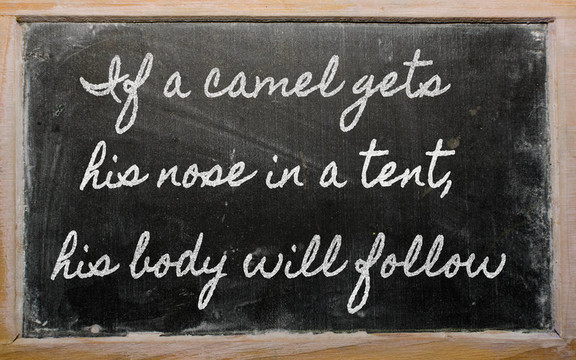 If a camel gets
his nose in a tent,
his body will follow